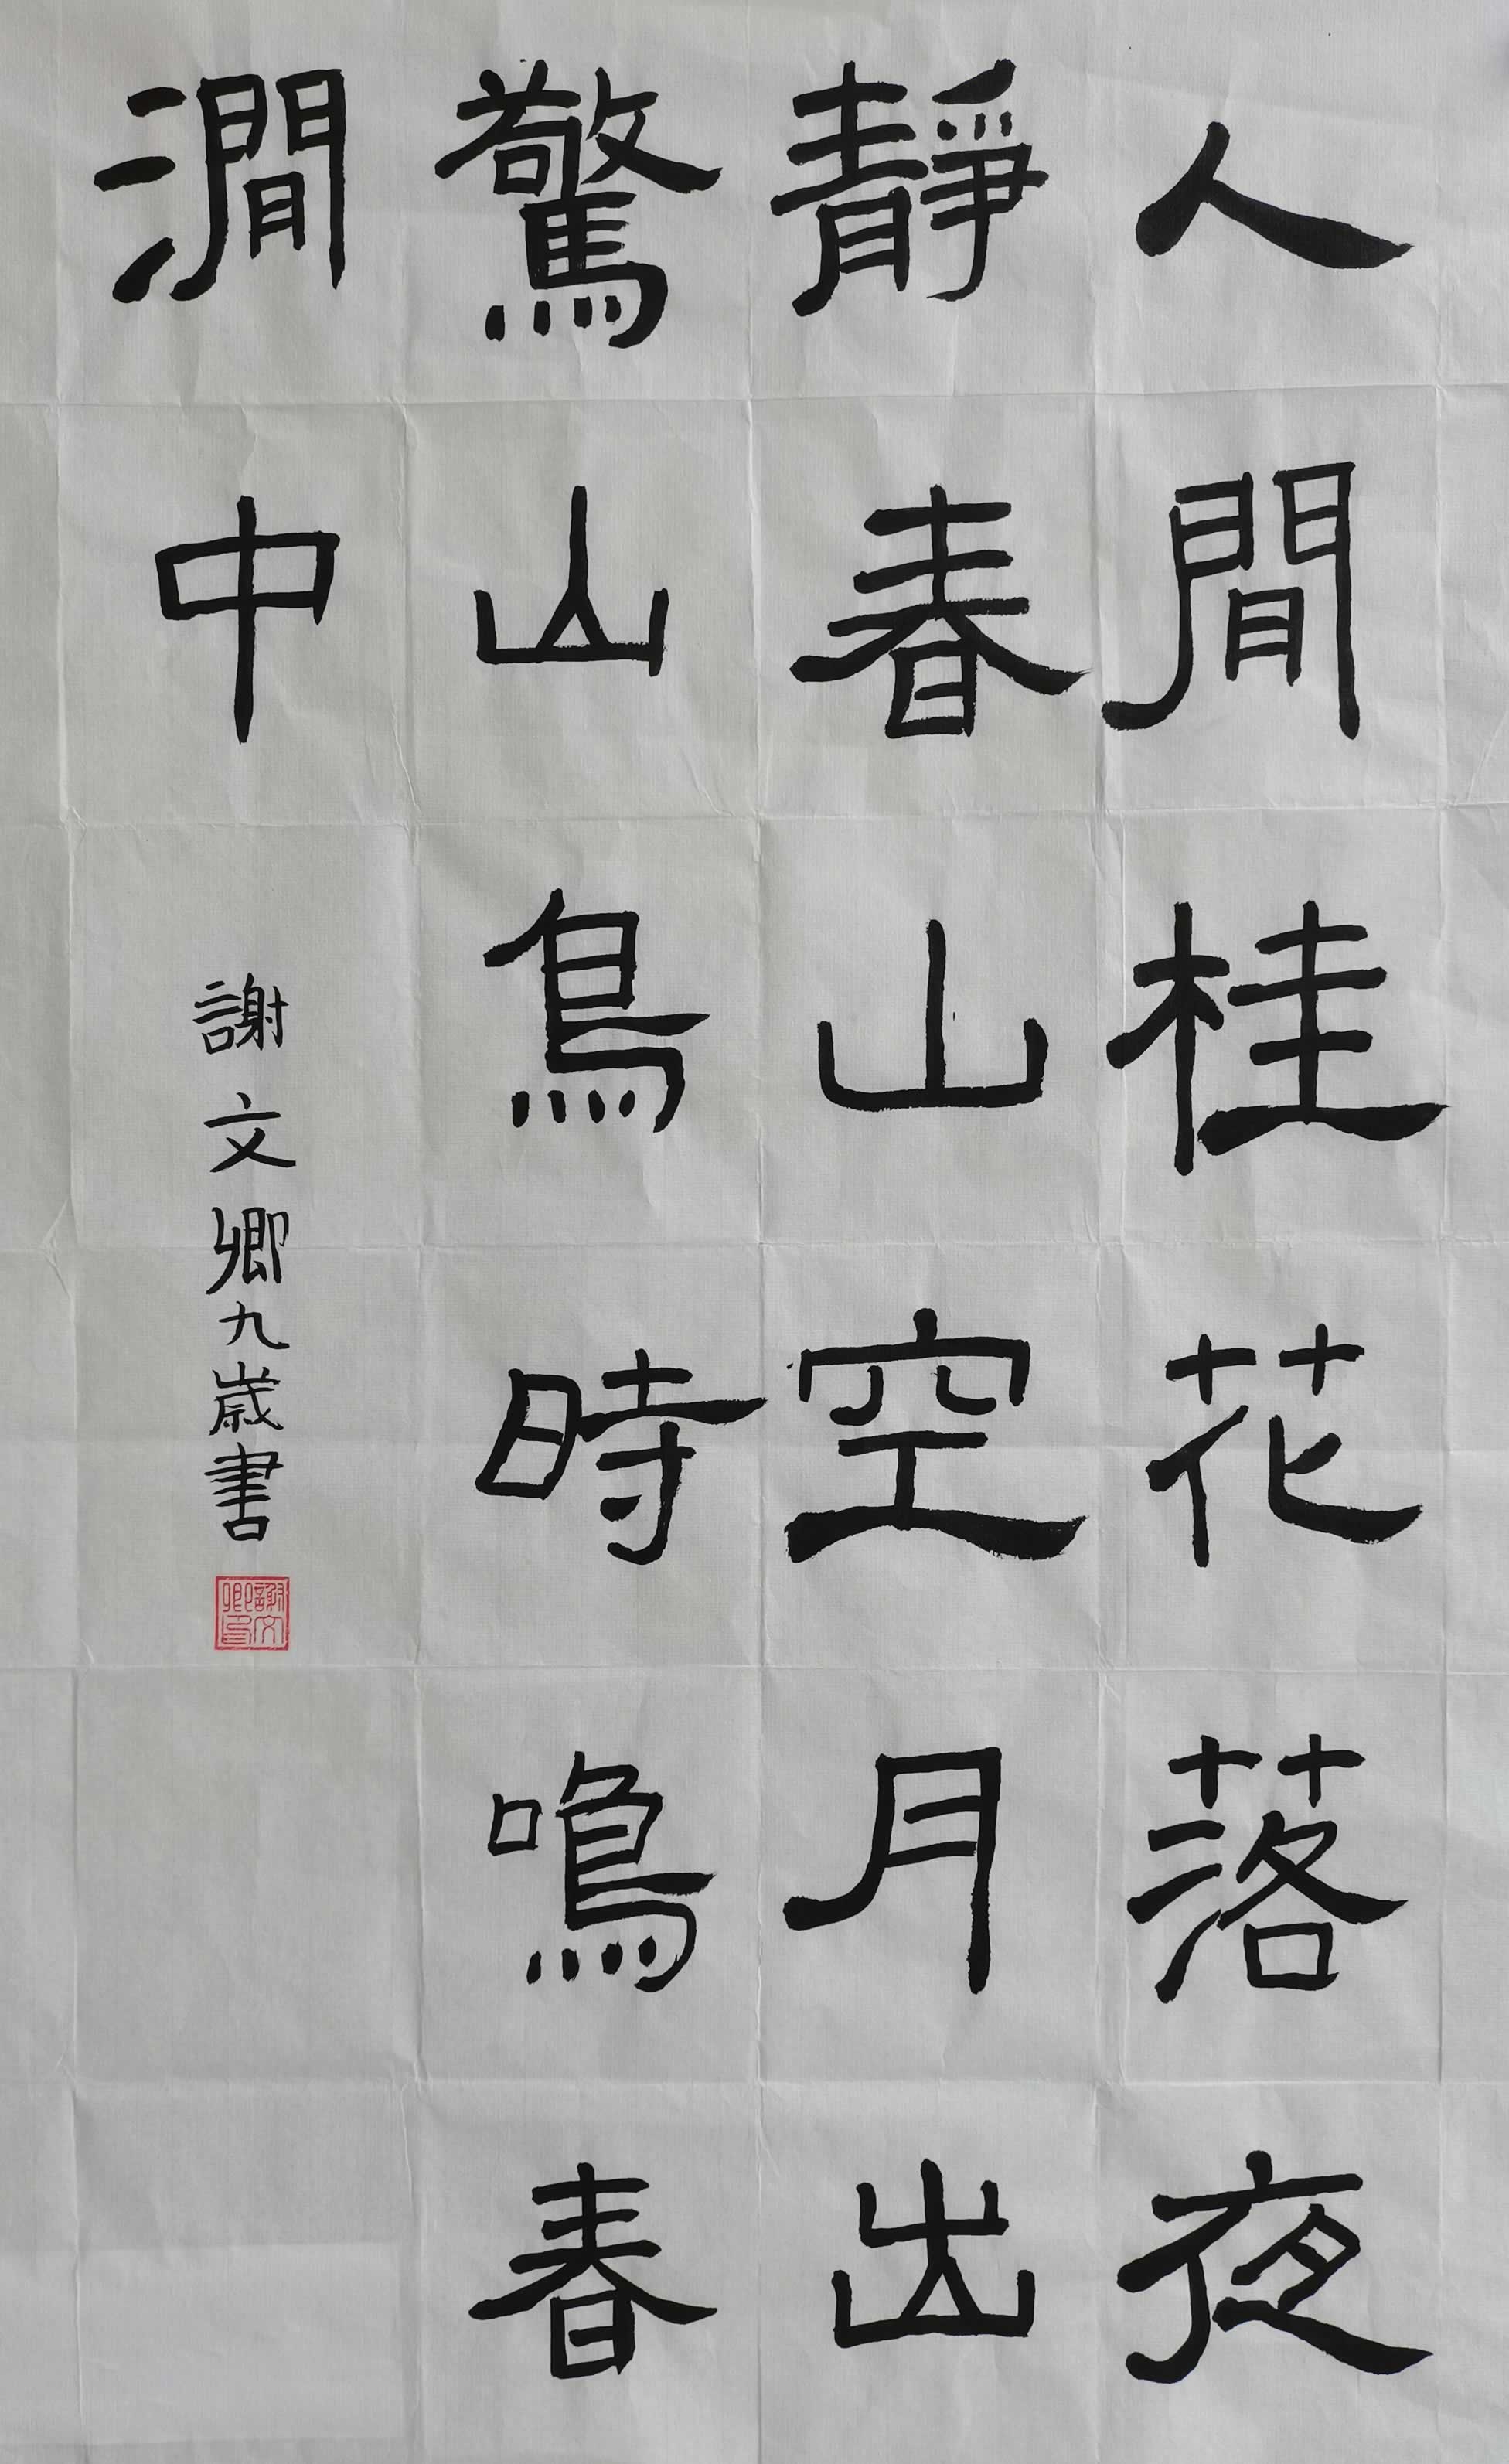 人間桂花落夜
靜春山空月出
驚山鳥時鳴春
澗中
謝文卿九歲書
謝文卿印